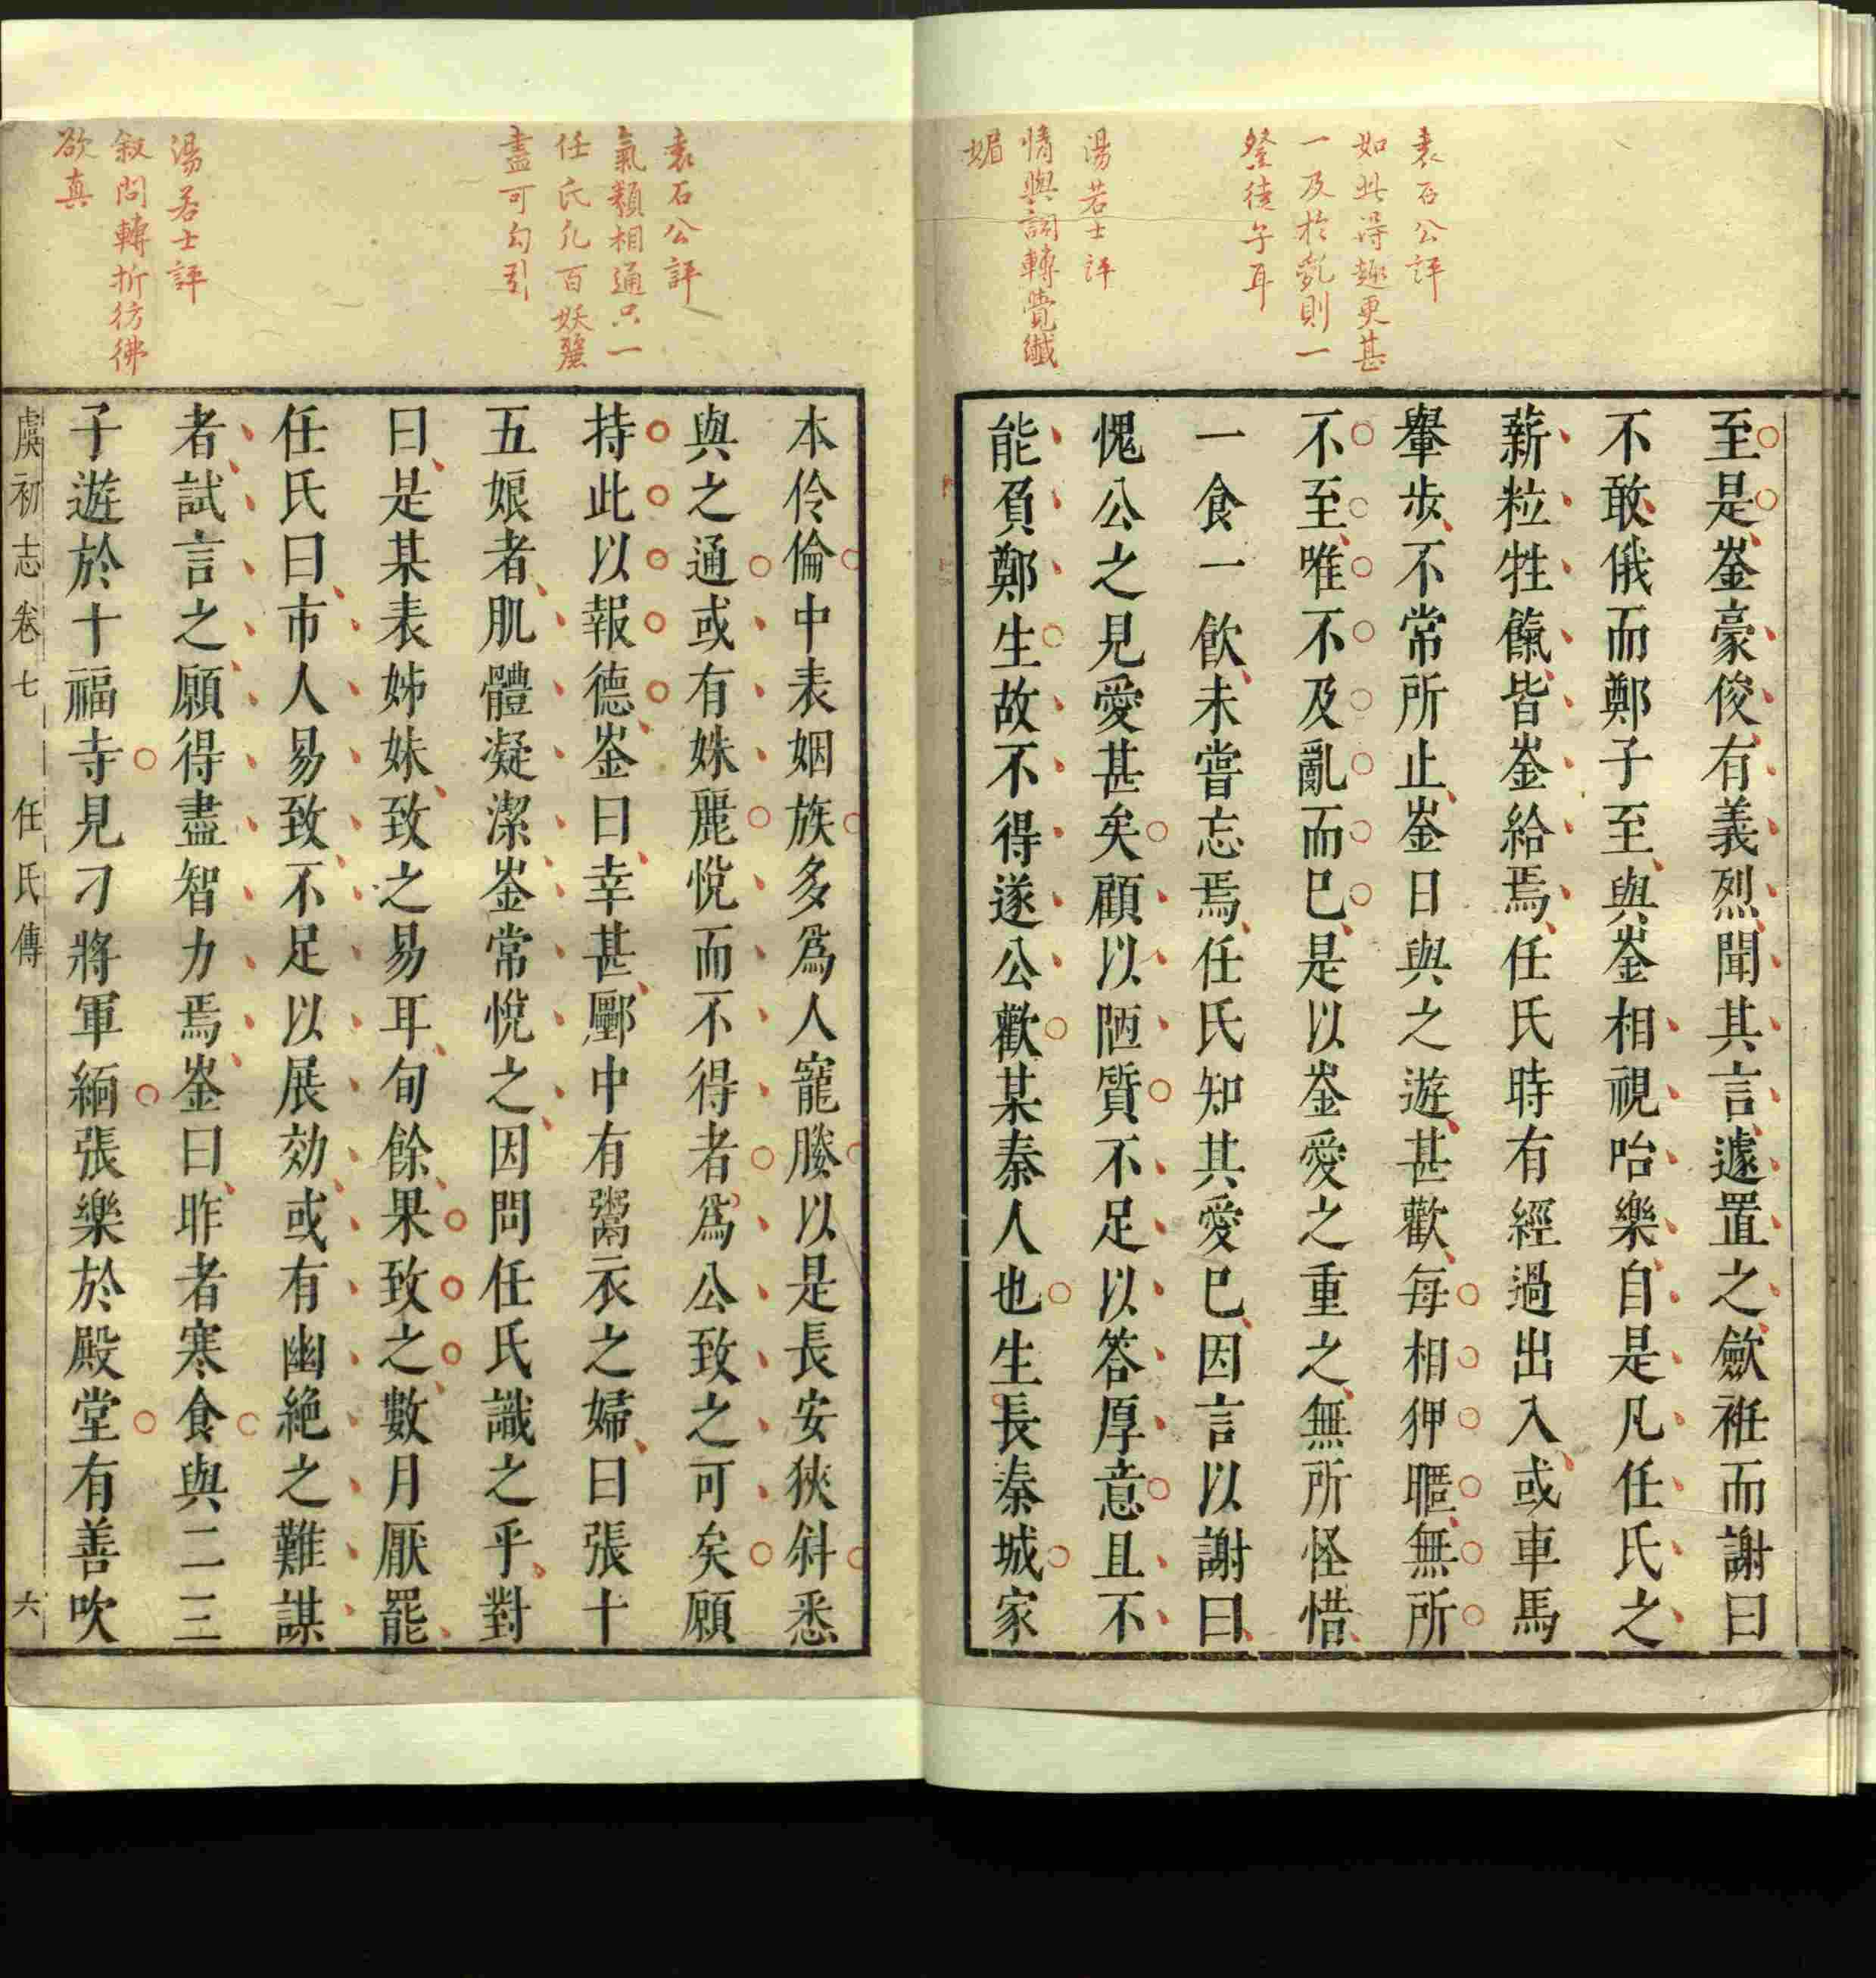 袁石公評
如此得趣更甚
一及於亂則一
登徒子耳
湯若士評
情與詞轉覺纖
媚
至是崟豪俊有義烈聞其言遽置之歛衽而謝曰
不敢俄而鄭子至與崟相視咍樂自是凡任氏之
薪粒牲餼皆崟給焉任氏時有經過出入或車馬
轝步不常所止崟日與之遊甚歡每相狎暱無所
不至唯不及亂而已是以崟愛之重之無所怪惜
一食一飲未嘗忘焉任氏知其愛已因言以謝曰
愧公之見愛甚矣顧以陋質不足以答厚意且不
能負鄭生故不得遂公歡某秦人也生長秦城家
袁石公評
氣類相通只一
任氏凢百妖麗
盡可勾引
湯若士評
叙問轉折彷彿
欲真
本伶倫中表姻族多爲人寵媵以是長安狹斜悉
與之通或有姝麗悅而不得者爲公致之可矣願
持此以報德崟曰幸甚鄽中有鬻衣之婦曰張十
五娘者肌體凝潔崟常悅之因問任氏識之乎對
曰是某表姊妹致之易耳旬餘果致之數月厭罷
任氏曰市人易致不足以展効或有幽絕之難謀
者試言之願得盡智力焉崟曰昨者寒食與二三
子遊於十福寺見刁將軍緬張樂於殿堂有善吹
虞初志卷七 任氏傳 六